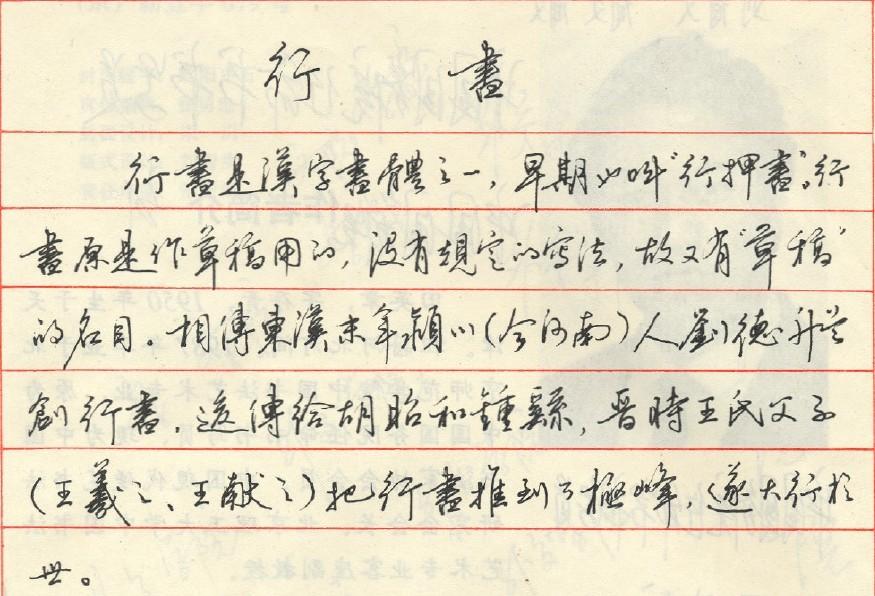 行書
行書是漢字書體之一，早期也叫“行押書”。行
書原是作草稿用的，沒有規定的寫法，故又有“草稿”
的名目。相傳東漢末年潁川（今河南）人劉德升首
創行書，後傳給胡昭和鍾繇，晋時王氏父子
（王羲之、王献之）把行書推到了極峰，遂大行於
世。